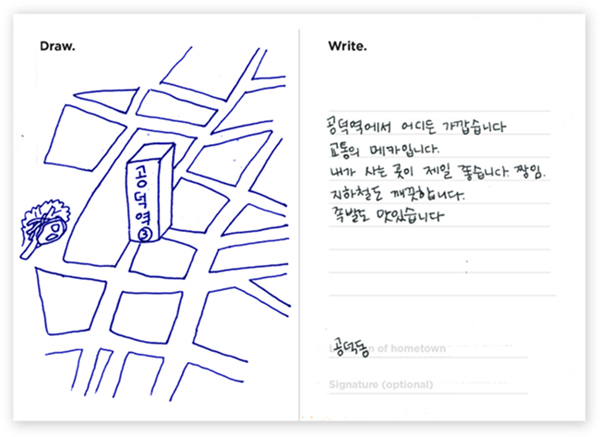 Draw.
③
Write.
공덕역에서 어디든 가깝습니다
교통의 메카입니다.
내가 사는 곳이 제일 좋습니다. 짱임.
지하철도 깨끗합니다.
족발도 맛있습니다
공덕동
of hometown
Signature (optional)